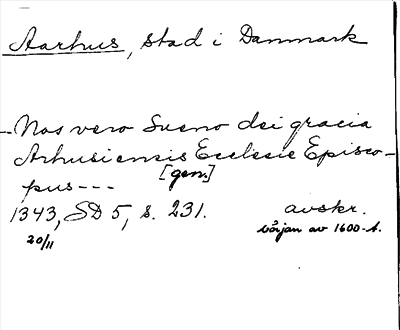 Aarhus, stad i Danmark
-Nos vero Sueno dei gracia
Arhusiensis Ecclesie Episco-
pus---   [gen.]
1343, SD 5, s. 231.   avskr.
20/11   början av 1600-t.